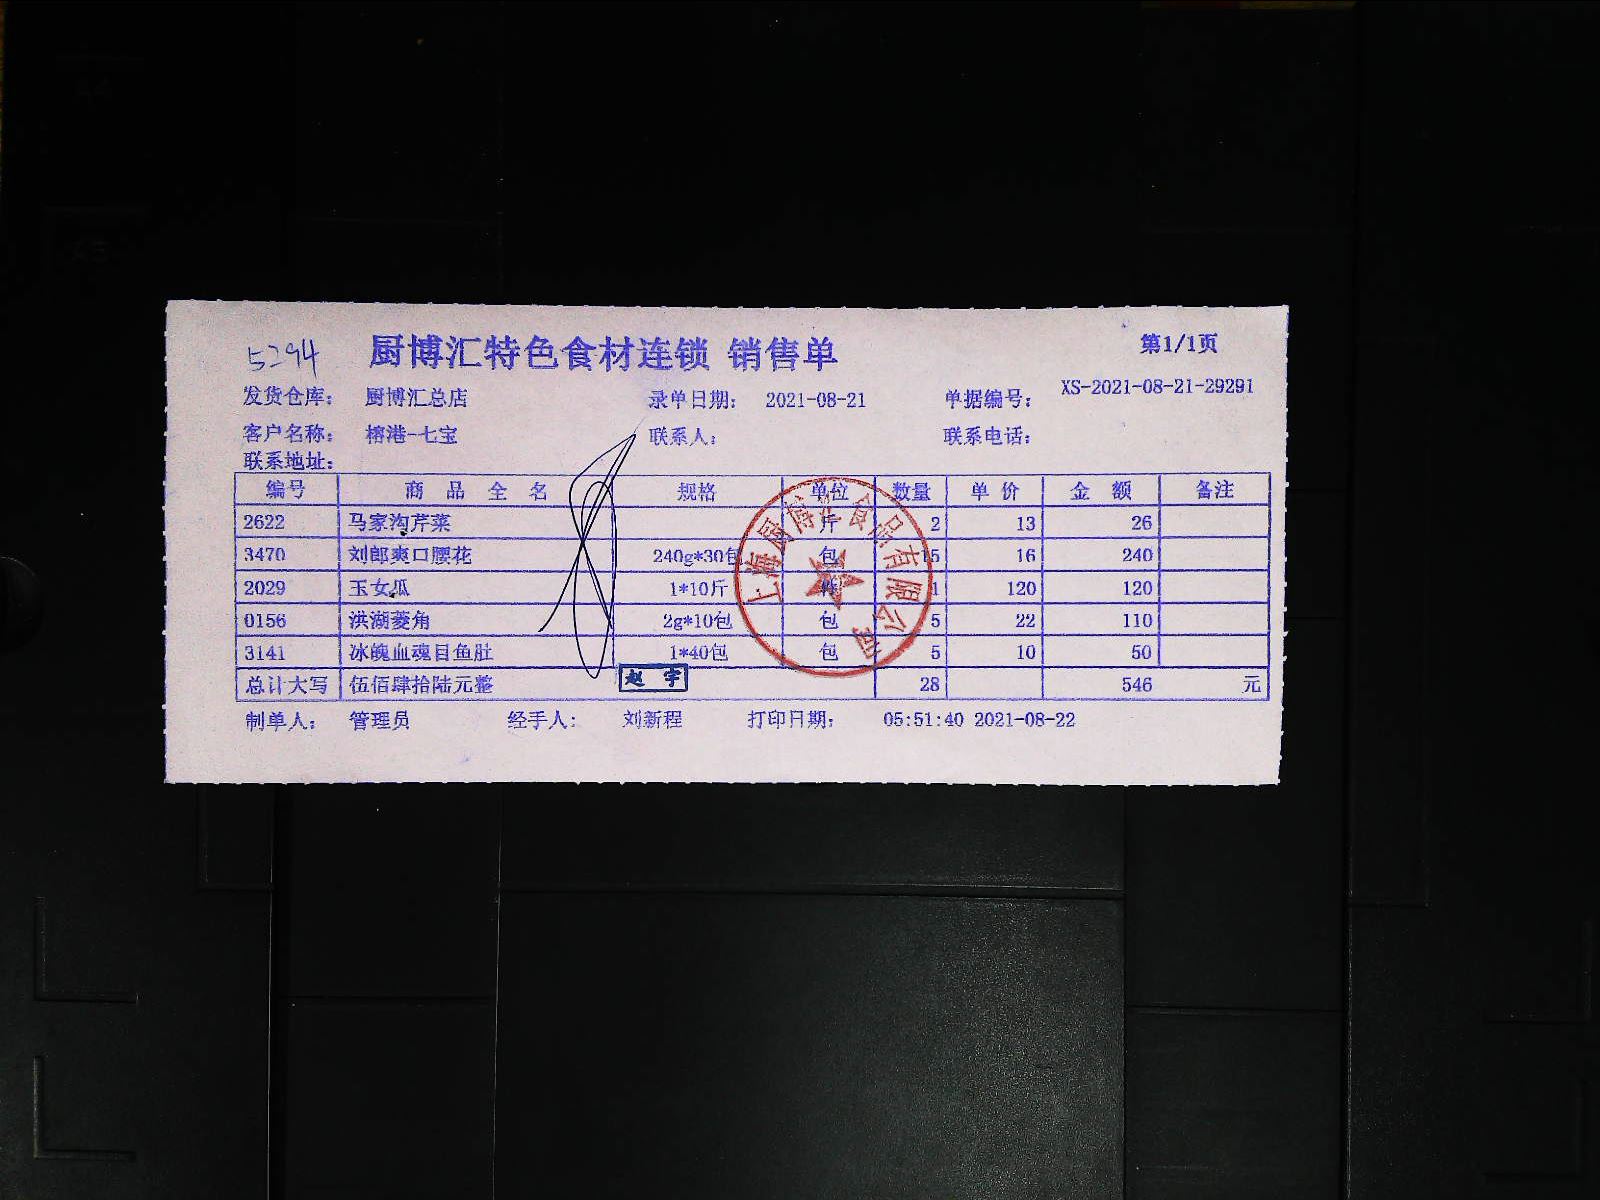 5294
厨博汇特色食材连锁 销售单
第1/1页
发货仓库： 厨博汇总店 录单日期： 2021-08-21 单据编号： XS-2021-08-21-29291
客户名称： 榕港-七宝 联系人： 联系电话：
联系地址：
编号 商品全名 规格 单位 数量 单价 金额 备注
2622 马家沟芹菜 斤 2 13 26
3470 刘郎爽口腰花 240g*30包 包 15 16 240
2029 玉女瓜 1*10斤 1 120 120
0156 洪湖菱角 2g*10包 包 5 22 110
3141 冰魄血魂目鱼肚 1*40包 包 5 10 50
总计大写 伍佰肆拾陆元整 28 546 元
赵宇
上海厨博汇食品有限公司
制单人： 管理员 经手人： 刘新程 打印日期： 05:51:40 2021-08-22